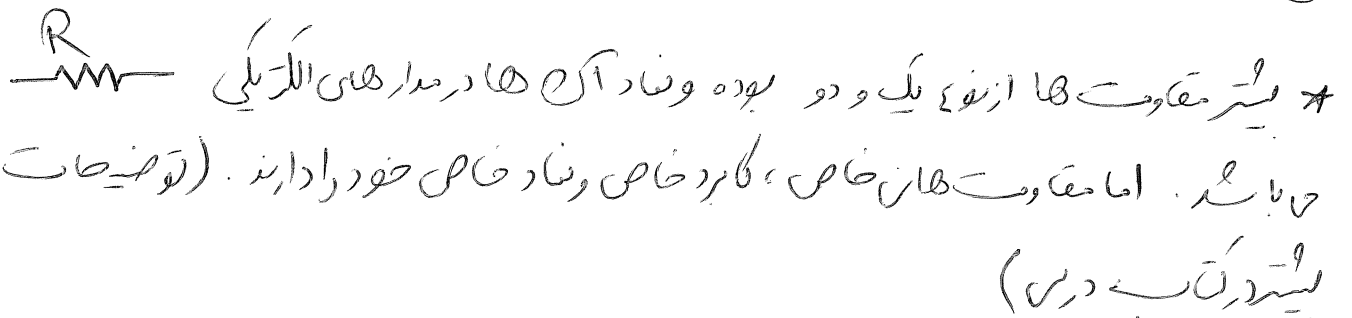 R
* بیشتر مقاومت ها از نوع یک و دو بوده و نماد آن ها در مدارهای الکتریکی
می باشد. اما مقاومت های خاص، کاربرد خاص و نماد خاص خود را دارند. (توضیحات
بیشتر در کتاب درسی)